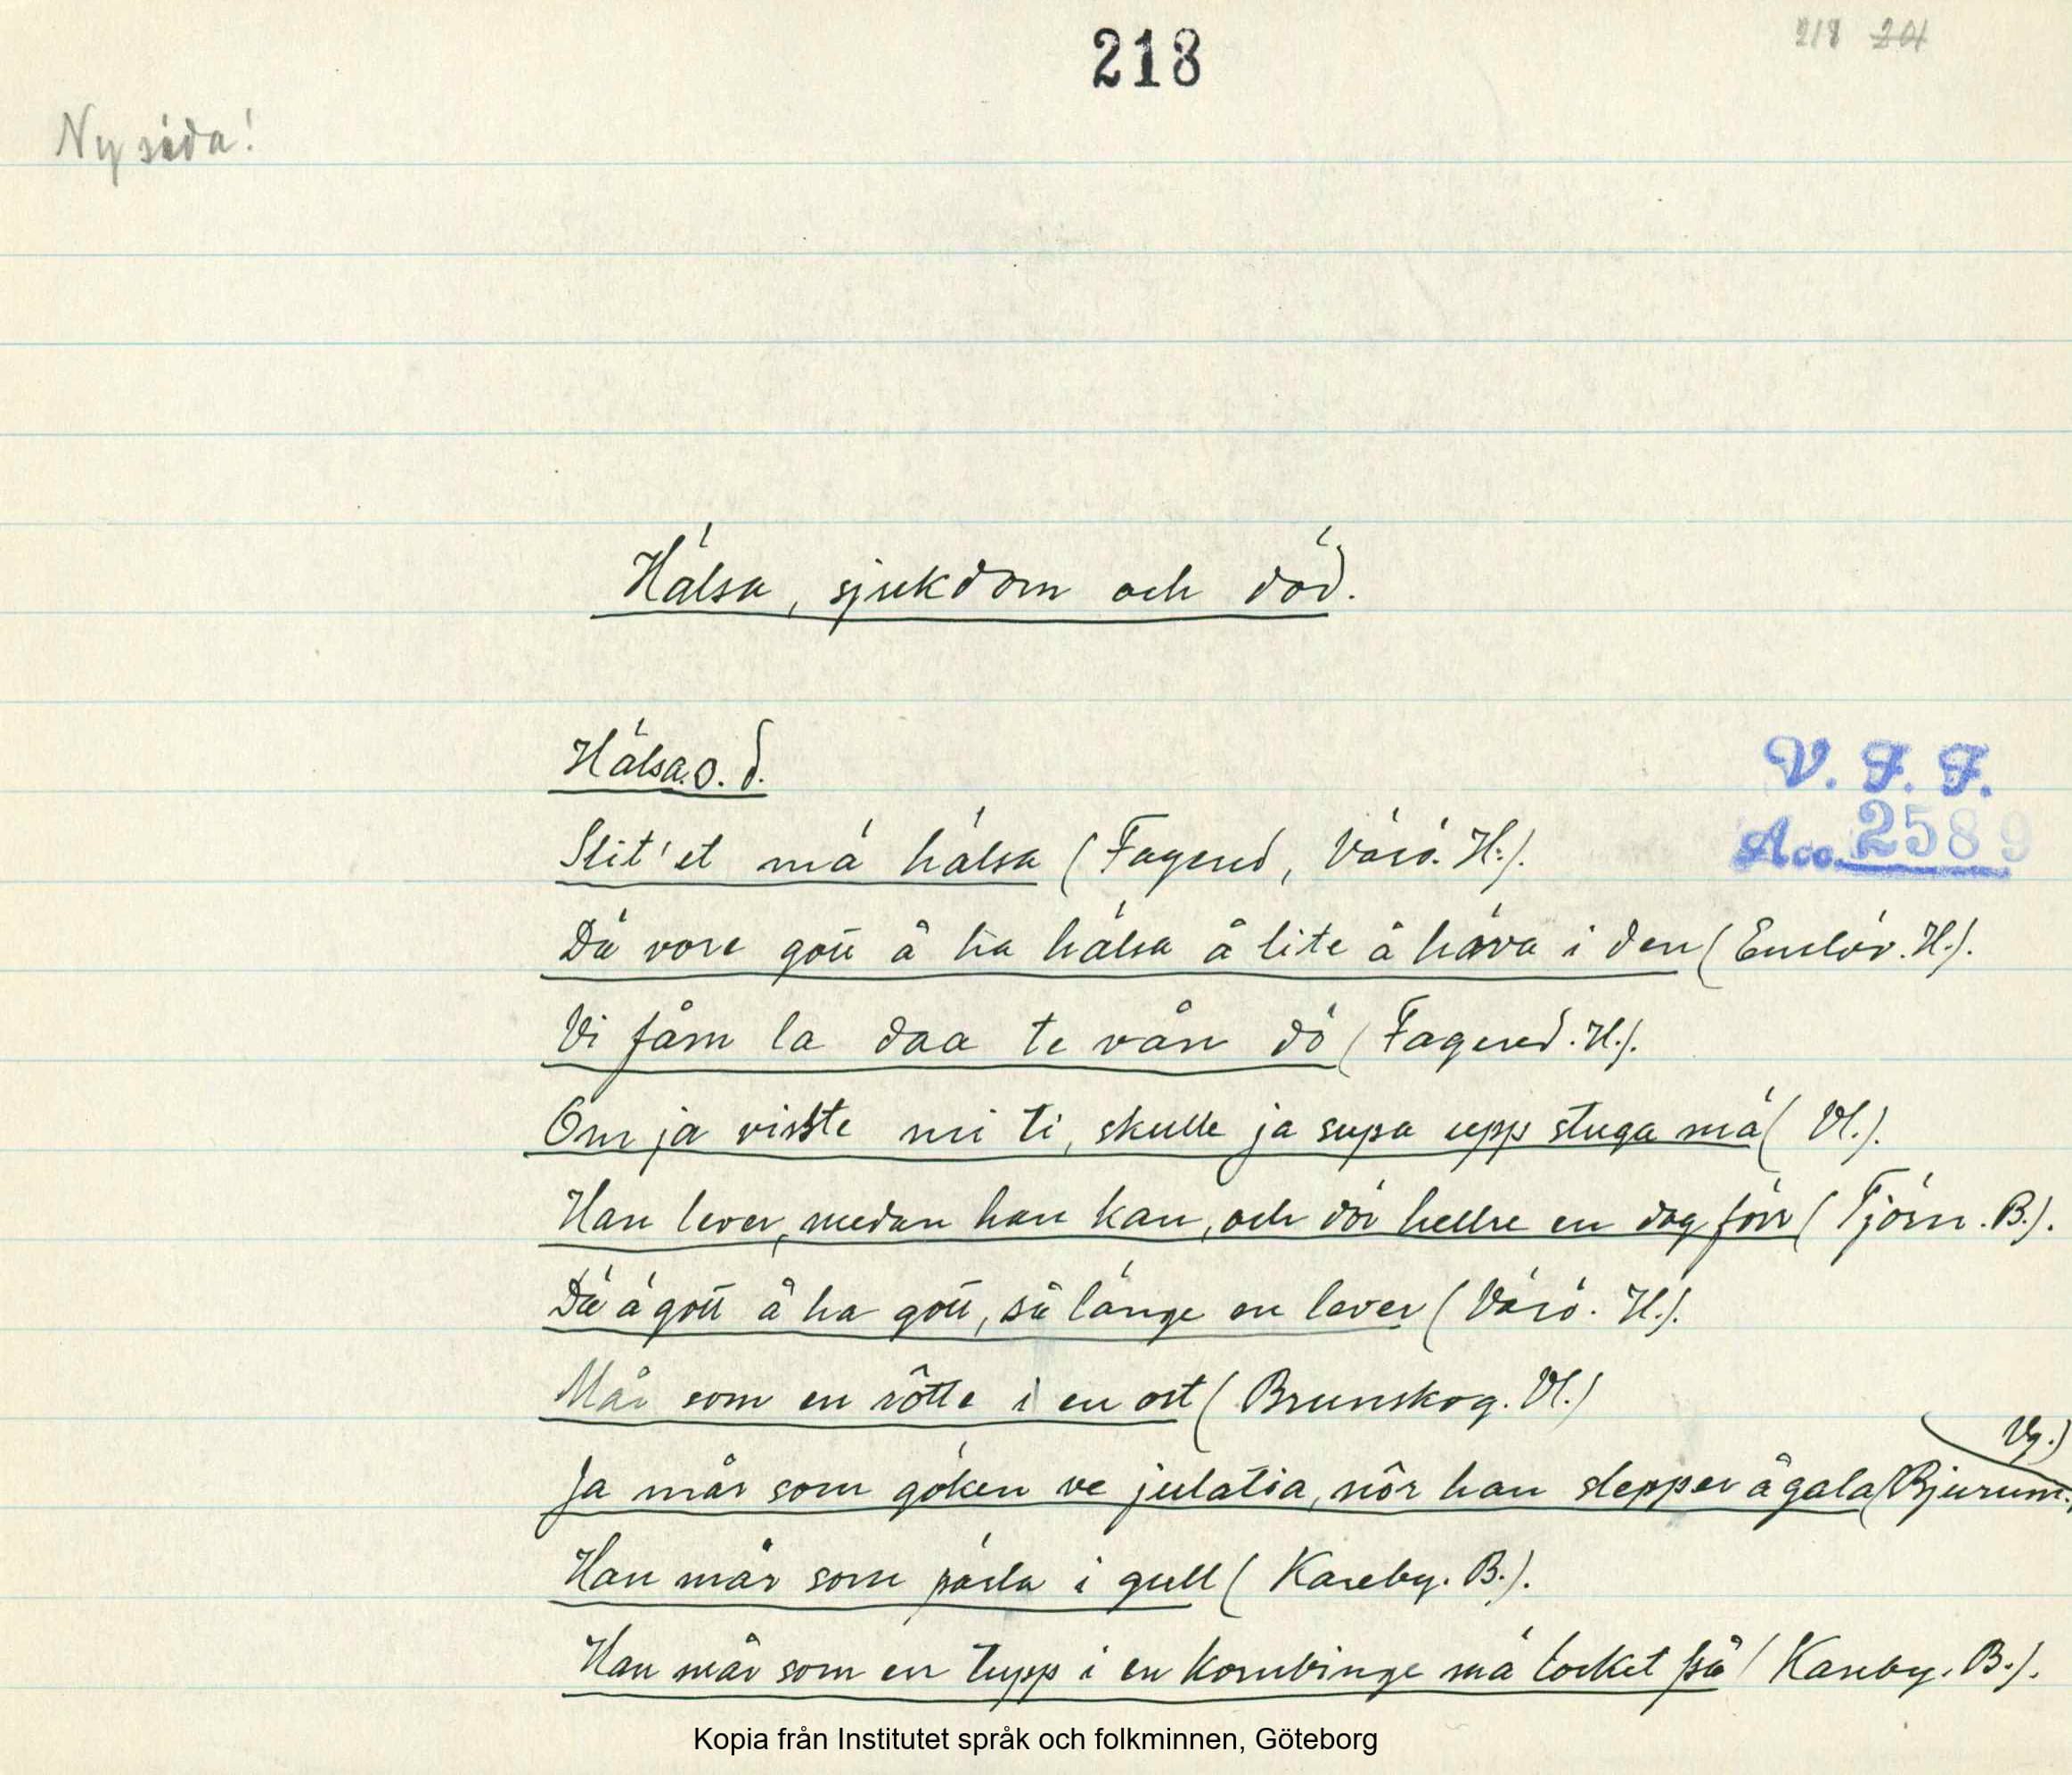 218
218 201
Ny sida!
Hälsa, sjukdom och död.
Hälsa.o.d.
V. F. F.
Acc. 2589
Slit'et mä hälsa (Fagered, Värö. H.).
Dä vore gott å ha hälsa å lite å häva i den (Enslöv. H.).
Vi fåm la daa te vån dö (Fagered. H.).
Om ja visste mi ti, skulle ja supa upp stuga mä (Vl.).
Han lever, medan han kan, och dör hellre en dag förr (Tjörn. B.).
Dä ä gott å ha gott, så länge en lever (Värö. H.).
Mår som en rôtte i en ost (Brunskog. Vl.)
Ja mår som göken ve julatia, nôr han slepper å gala (Bjurum. Vg.)
Han mår som pärla i gull (Kareby. B.).
Han mår som en tupp i en kornbinge mä locket på (Kareby. B.).
Kopia från Institutet språk och folkminnen, Göteborg